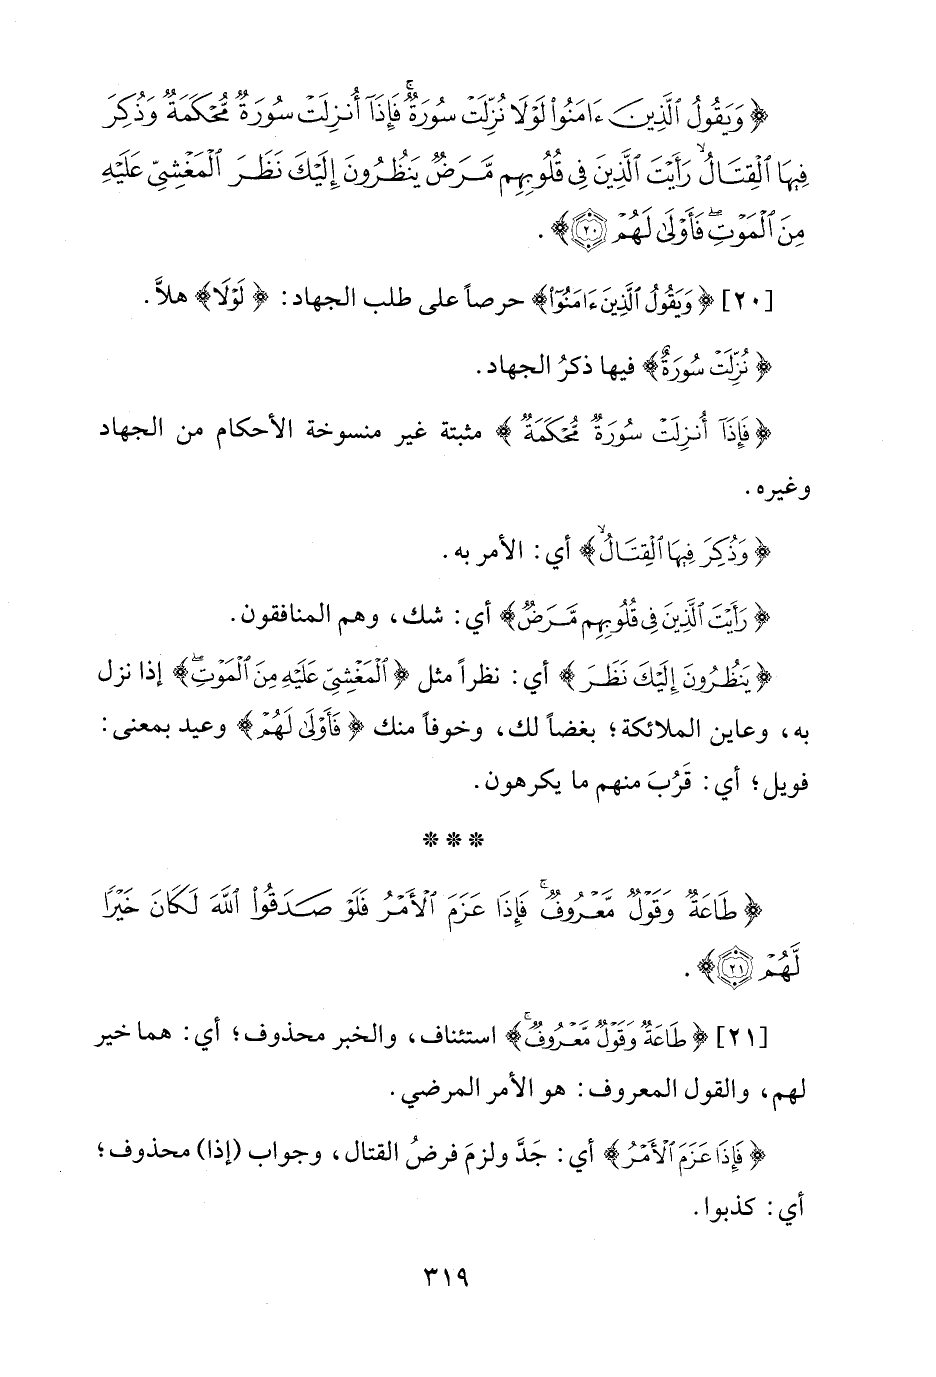 ﴿ وَيَقُولُ ٱلَّذِينَ ءَامَنُوا۟ لَوْلَا نُزِّلَتْ سُورَةٌۖ فَإِذَآ أُنزِلَتْ سُورَةٌ مُّحْكَمَةٌ وَذُكِرَ
فِيهَا ٱلْقِتَالُۙ رَأَيْتَ ٱلَّذِينَ فِى قُلُوبِهِم مَّرَضٌ يَنظُرُونَ إِلَيْكَ نَظَرَ ٱلْمَغْشِىِّ عَلَيْهِ
مِنَ ٱلْمَوْتِۖ فَأَوْلَىٰ لَهُمْ ۝٢٠ ﴾ .
[٢٠] ﴿ وَيَقُولُ ٱلَّذِينَ ءَامَنُوا۟ ﴾ حرصاً على طلب الجهاد: ﴿ لَوْلَا ﴾ هلاَّ.
﴿ نُزِّلَتْ سُورَةٌ ﴾ فيها ذكرُ الجهاد.
﴿ فَإِذَآ أُنزِلَتْ سُورَةٌ مُّحْكَمَةٌ ﴾ مثبتة غير منسوخة الأحكام من الجهاد
وغيره.
﴿ وَذُكِرَ فِيهَا ٱلْقِتَالُۙ ﴾ أي: الأمر به.
﴿ رَأَيْتَ ٱلَّذِينَ فِى قُلُوبِهِم مَّرَضٌ ﴾ أي: شك، وهم المنافقون.
﴿ يَنظُرُونَ إِلَيْكَ نَظَرَ ﴾ أي: نظراً مثل ﴿ ٱلْمَغْشِىِّ عَلَيْهِ مِنَ ٱلْمَوْتِۖ ﴾ إذا نزل
به، وعاين الملائكة؛ بغضاً لك، وخوفاً منك ﴿ فَأَوْلَىٰ لَهُمْ ﴾ وعيد بمعنى:
فويل؛ أي: قَرُبَ منهم ما يكرهون.
***
﴿ طَاعَةٌ وَقَوْلٌ مَّعْرُوفٌۚ فَإِذَا عَزَمَ ٱلْأَمْرُ فَلَوْ صَدَقُوا۟ ٱللَّهَ لَكَانَ خَيْرًا
لَّهُمْ ۝٢١ ﴾ .
[٢١] ﴿ طَاعَةٌ وَقَوْلٌ مَّعْرُوفٌۚ ﴾ استئناف، والخبر محذوف؛ أي: هما خير
لهم، والقول المعروف: هو الأمر المرضي.
﴿ فَإِذَا عَزَمَ ٱلْأَمْرُ ﴾ أي: جَدَّ ولزمَ فرضُ القتال، وجواب (إذا) محذوف؛
أي: كذبوا.
٣١٩